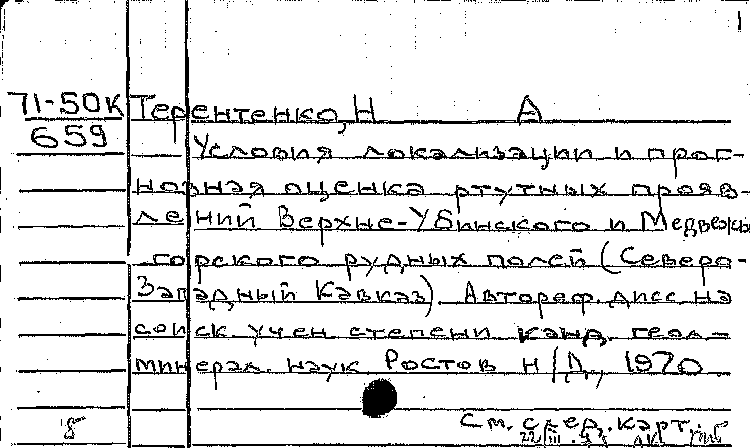 1
71-50к Терентенко, Н А
659 Условия локализации и прог-
нозная оценка ртутных прояв-
лений Верхне-Убинского и Медвежье-
горского рудных полей (Северо-
Западный Кавказ). Автореф. дисс на
соиск. учен степени канд. геол-
минерал. наук Ростов н/Д, 1970
см. след. карт.